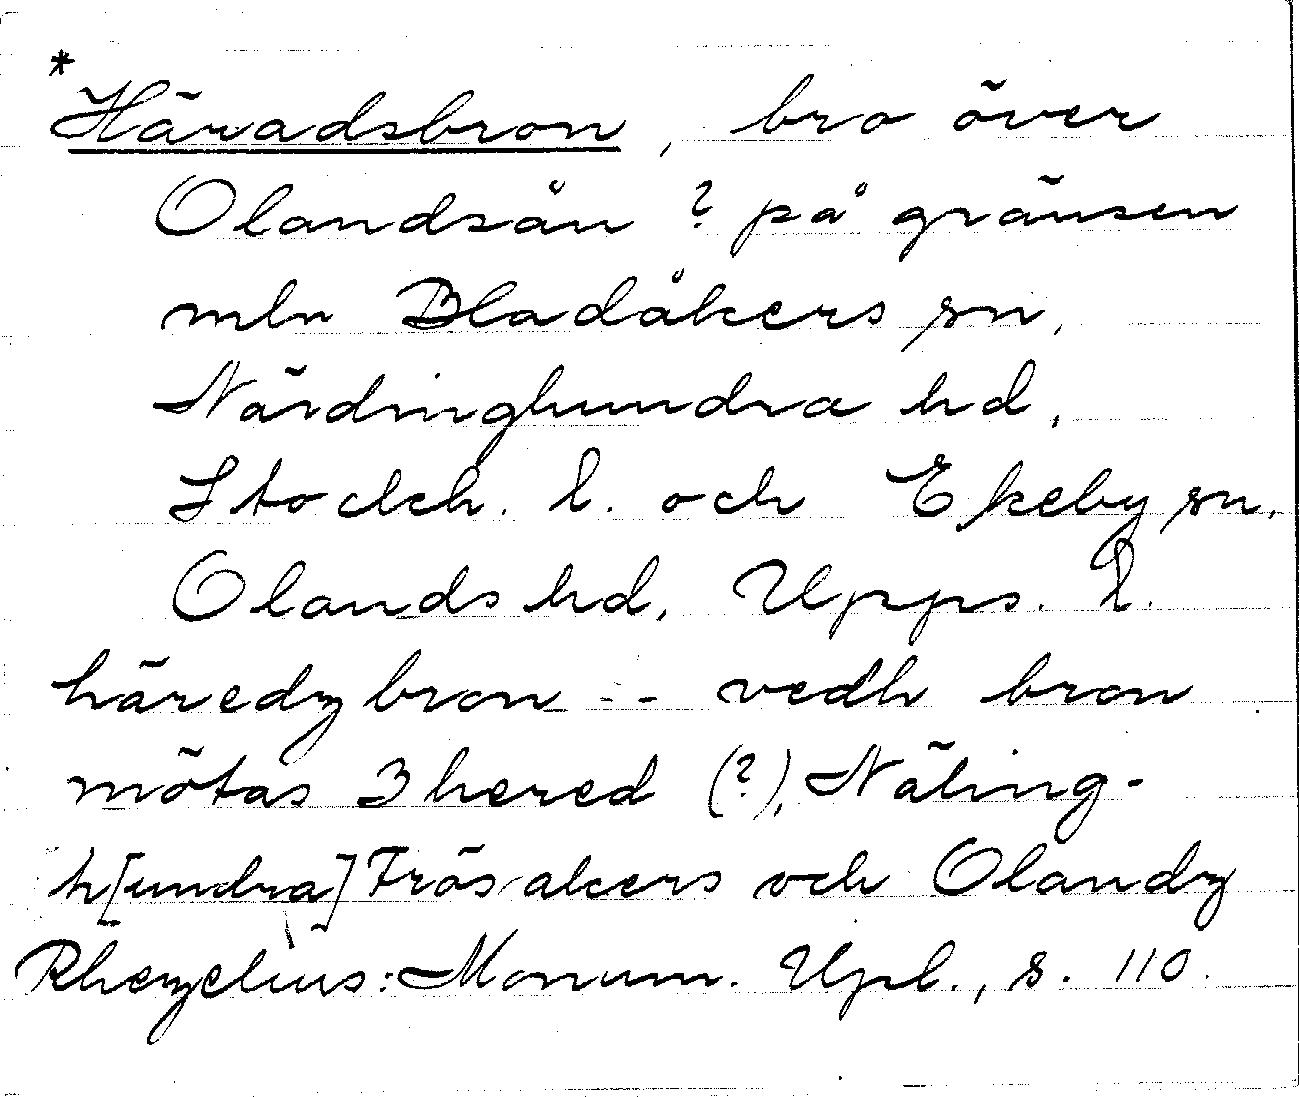 *Häradsbron, bro över
Olandsån ? på gränsen
mln Bladåkers sn,
Närdinghundra hd,
Stockh. l. och Ekeby sn,
Olands hd, Upps. l.
häredzbron -- vedh bron
mötas 3 hered (?), Näling-
h[undra] Frösakers och Olandz
Rhezelius: Monum. Upl., s. 110.